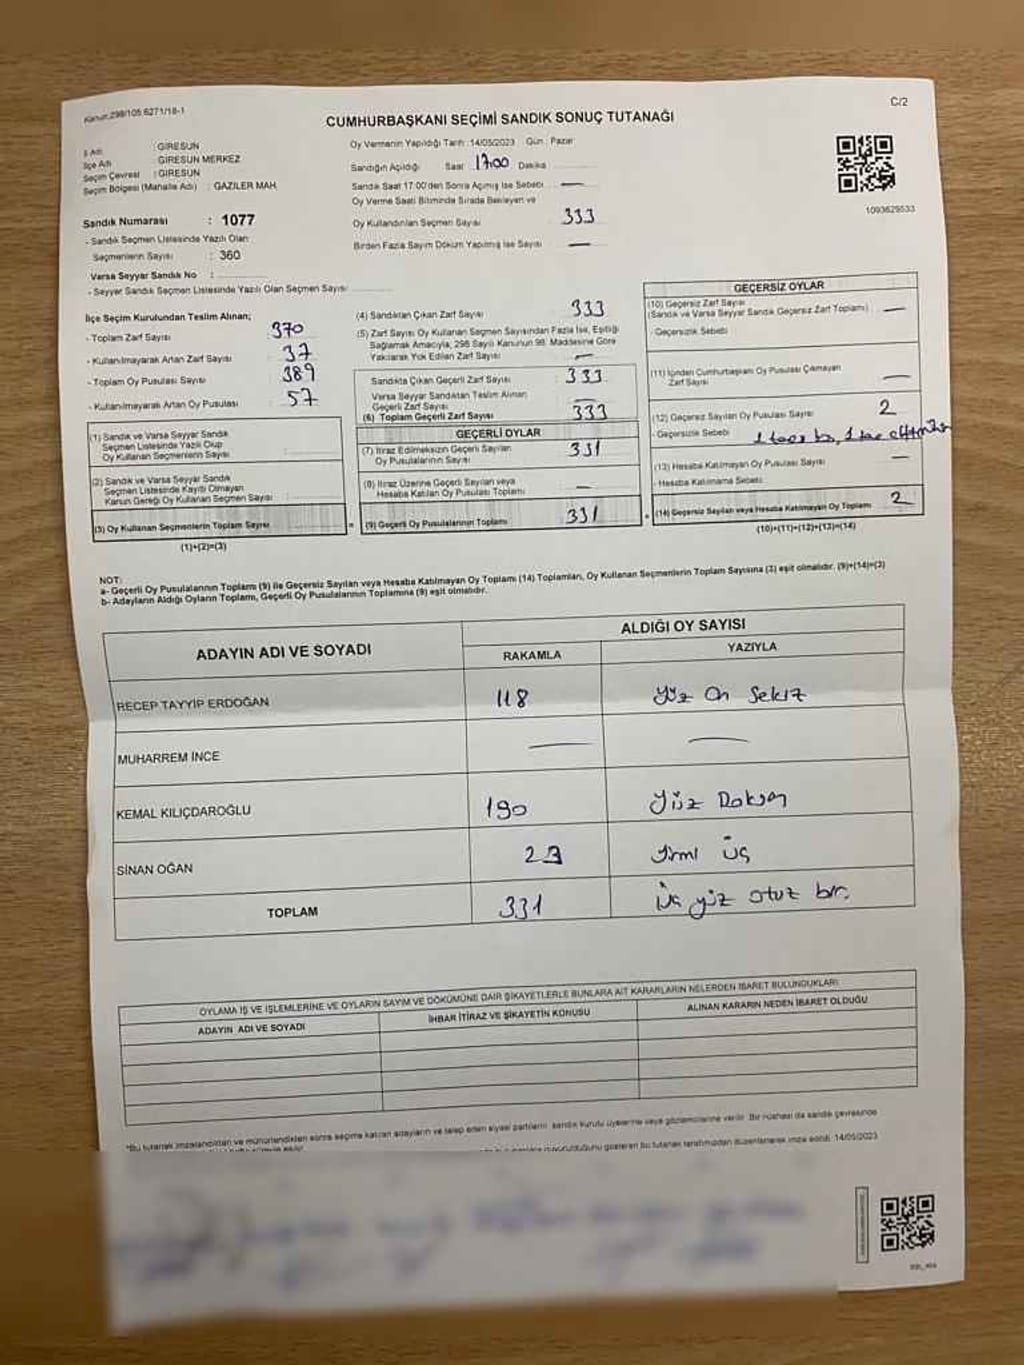 Kanun:298/105.6271/18-1
C/2
CUMHURBAŞKANI SEÇİMİ SANDIK SONUÇ TUTANAĞI
İl Adı : GİRESUN
İlçe Adı : GİRESUN MERKEZ
Seçim Çevresi : GİRESUN
Seçim Bölgesi (Mahalle Adı) : GAZİLER MAH.
Sandık Numarası : 1077
- Sandık Seçmen Listesinde Yazılı Olan
Seçmenlerin Sayısı : 360
Varsa Seyyar Sandık No :
- Seyyar Sandık Seçmen Listesinde Yazılı Olan Seçmen Sayısı:
Oy Vermenin Yapıldığı Tarih :14/05/2023 Gün : Pazar
Sandığın Açıldığı Saat 17:00 Dakika
Sandık Saat 17:00'den Sonra Açılmış İse Sebebi —
Oy Verme Saati Bitiminde Sırada Bekleyen ve
Oy Kullandırılan Seçmen Sayısı 333
Birden Fazla Sayım Döküm Yapılmış İse Sayısı —
1093629533
İlçe Seçim Kurulundan Teslim Alınan;
- Toplam Zarf Sayısı : 370
- Kullanılmayarak Artan Zarf Sayısı : 37
- Toplam Oy Pusulası Sayısı : 389
- Kullanılmayarak Artan Oy Pusulası : 57
(1) Sandık ve Varsa Seyyar Sandık
Seçmen Listesinde Yazılı Olup
Oy Kullanan Seçmenlerin Sayısı
(2) Sandık ve Varsa Seyyar Sandık
Seçmen Listesinde Kayıtlı Olmayan
Kanun Gereği Oy Kullanan Seçmen Sayısı
(3) Oy Kullanan Seçmenlerin Toplam Sayısı
(1)+(2)=(3)
(4) Sandıktan Çıkan Zarf Sayısı 333
(5) Zarf Sayısı Oy Kullanan Seçmen Sayısından Fazla İse, Eşitliği
Sağlamak Amacıyla, 298 Sayılı Kanunun 98. Maddesine Göre
Yakılarak Yok Edilen Zarf Sayısı —
Sandıkta Çıkan Geçerli Zarf Sayısı : 333
Varsa Seyyar Sandıktan Teslim Alınan
Geçerli Zarf Sayısı : —
(6) Toplam Geçerli Zarf Sayısı : 333
GEÇERLİ OYLAR
(7) İtiraz Edilmeksizin Geçerli Sayılan
Oy Pusulalarının Sayısı 331
(8) İtiraz Üzerine Geçerli Sayılan veya
Hesaba Katılan Oy Pusulası Toplamı —
= (9) Geçerli Oy Pusulalarının Toplamı 331
GEÇERSİZ OYLAR
(10) Geçersiz Zarf Sayısı
(Sandık ve Varsa Seyyar Sandık Geçersiz Zarf Toplamı) —
- Geçersizlik Sebebi
(11) İçinden Cumhurbaşkanı Oy Pusulası Çıkmayan
Zarf Sayısı —
(12) Geçersiz Sayılan Oy Pusulası Sayısı 2
- Geçersizlik Sebebi
(13) Hesaba Katılmayan Oy Pusulası Sayısı —
- Hesaba Katılmama Sebebi
+ (14) Geçersiz Sayılan veya Hesaba Katılmayan Oy Toplamı 2
(10)+(11)+(12)+(13)=(14)
NOT:
a- Geçerli Oy Pusulalarının Toplamı (9) ile Geçersiz Sayılan veya Hesaba Katılmayan Oy Toplamı (14) Toplamları, Oy Kullanan Seçmenlerin Toplam Sayısına (3) eşit olmalıdır. (9)+(14)=(3)
b- Adayların Aldığı Oyların Toplamı, Geçerli Oy Pusulalarının Toplamına (9) eşit olmalıdır.
ADAYIN ADI VE SOYADI ALDIĞI OY SAYISI
RAKAMLA YAZIYLA
RECEP TAYYİP ERDOĞAN 118 Yüz On Sekiz
MUHARREM İNCE — —
KEMAL KILIÇDAROĞLU 190 Yüz Doksan
SİNAN OĞAN 23 Yirmi Üç
TOPLAM 331 Üç yüz otuz bir.
OYLAMA İŞ VE İŞLEMLERİNE VE OYLARIN SAYIM VE DÖKÜMÜNE DAİR ŞİKAYETLERLE BUNLARA AİT KARARLARIN NELERDEN İBARET BULUNDUKLARI
ADAYIN ADI VE SOYADI İHBAR İTİRAZ VE ŞİKAYETİN KONUSU ALINAN KARARIN NEDEN İBARET OLDUĞU
*Bu tutanak imzalandıktan ve mühürlendikten sonra seçime katılan adayların ve talep eden siyasi partilerin sandık kurulu üyelerine veya gözlemcilerine verilir. Bir nüshası da sandık çevresinde
gösteren bu tutanak tarafımızdan düzenlenerek imza edildi. 14/05/2023